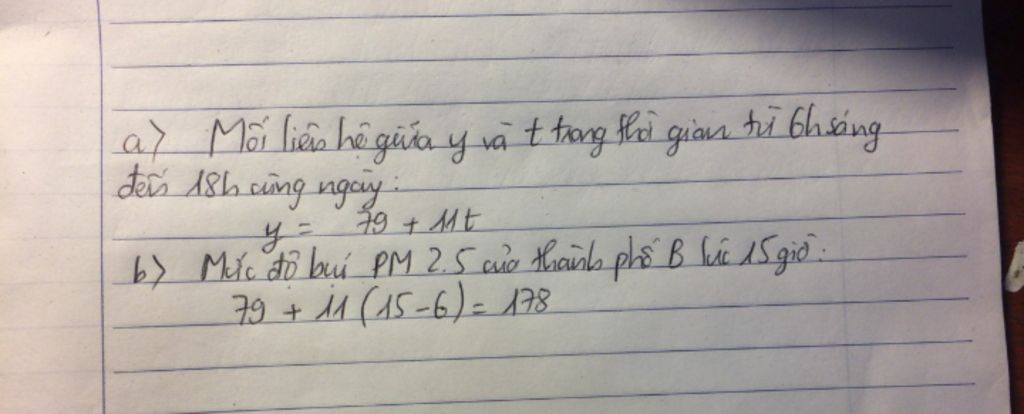 a) Mối liên hệ giữa y và t trong thời gian từ 6h sáng
đến 18h cùng ngày:
y = 79 + 11t
b) Mức độ bụi PM 2.5 của thành phố B lúc 15 giờ:
79 + 11 (15-6) = 178